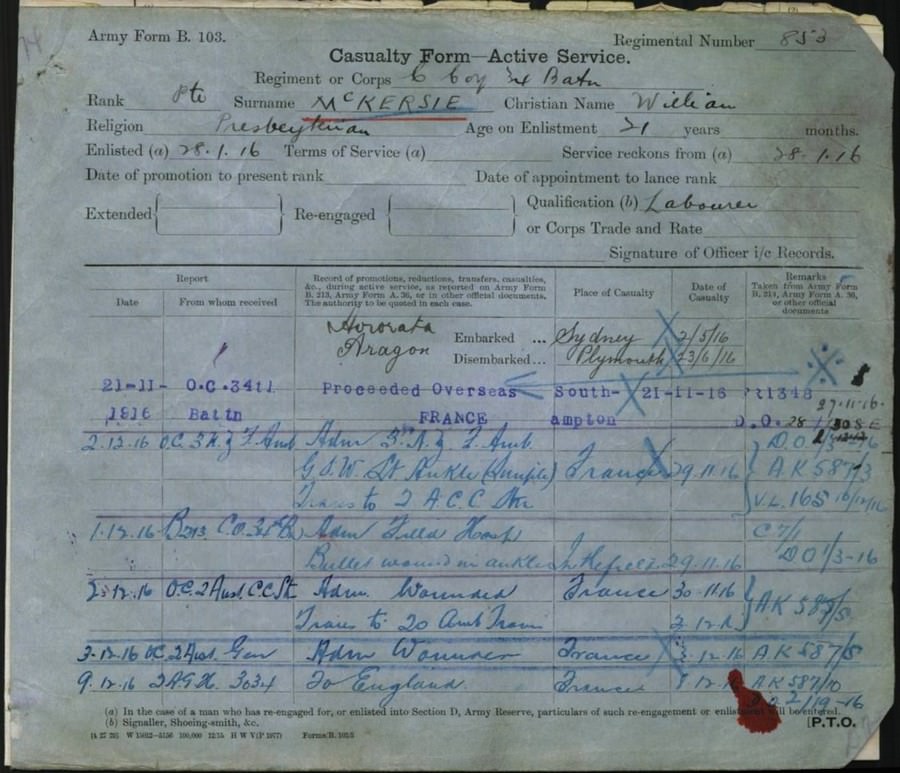 Army Form B. 103.
Regimental Number 853
Casualty Form—Active Service.
Regiment or Corps C Coy 34 Batn
Rank Pte Surname McKERSIE Christian Name William
Religion Presbyterian Age on Enlistment 21 years months.
Enlisted (a) 28.1.16 Terms of Service (a) Service reckons from (a) 28.1.16
Date of promotion to present rank Date of appointment to lance rank
Extended Re-engaged Qualification (b) Labourer
or Corps Trade and Rate
Signature of Officer i/c Records.
Report
Date From whom received
Record of promotions, reductions, transfers, casualties, &c., during active service, as reported on Army Form B. 213, Army Form A. 36, or in other official documents. The authority to be quoted in each case.
Place of Casualty
Date of Casualty
Remarks Taken from Army Form B. 213, Army Form A. 36, or other official documents
Embarked ... Sydney 2/5/16
Aragon Disembarked... Plymouth 23/6/16
21-11- O.C.34th Proceeded Overseas South- 21-11-16
1916 Battn FRANCE ampton D.O. 28
27-11-16
2.12.16 Adm 3. N.Z. F. Amb. D.O.
G.S.W. Lt Ankle France 29.11.16 AK587/3
Trans to 2 A.C.C. Stn V.L. 165
1.12.16 B213 Adm Field Hosp C 7/1
Bullet wound in ankle In the field 29.11.16 DO 1/3-16
2.12.16 O.C. 2 Aust. C.C. St. Adm. Wounded France 30.11.16 AK 587/5
Trans to 20 Amb Train
3.12.16 OC. 2 Aust. Gen Adm Wounded France 3.12.16 AK 587/8
9.12.16 2 AGH. 3034 To England France 8.12.16 AK 587/10
(a) In the case of a man who has re-engaged for, or enlisted into Section D, Army Reserve, particulars of such re-engagement or enlistment will be entered.
(b) Signaller, Shoeing-smith, &c. [P.T.O.